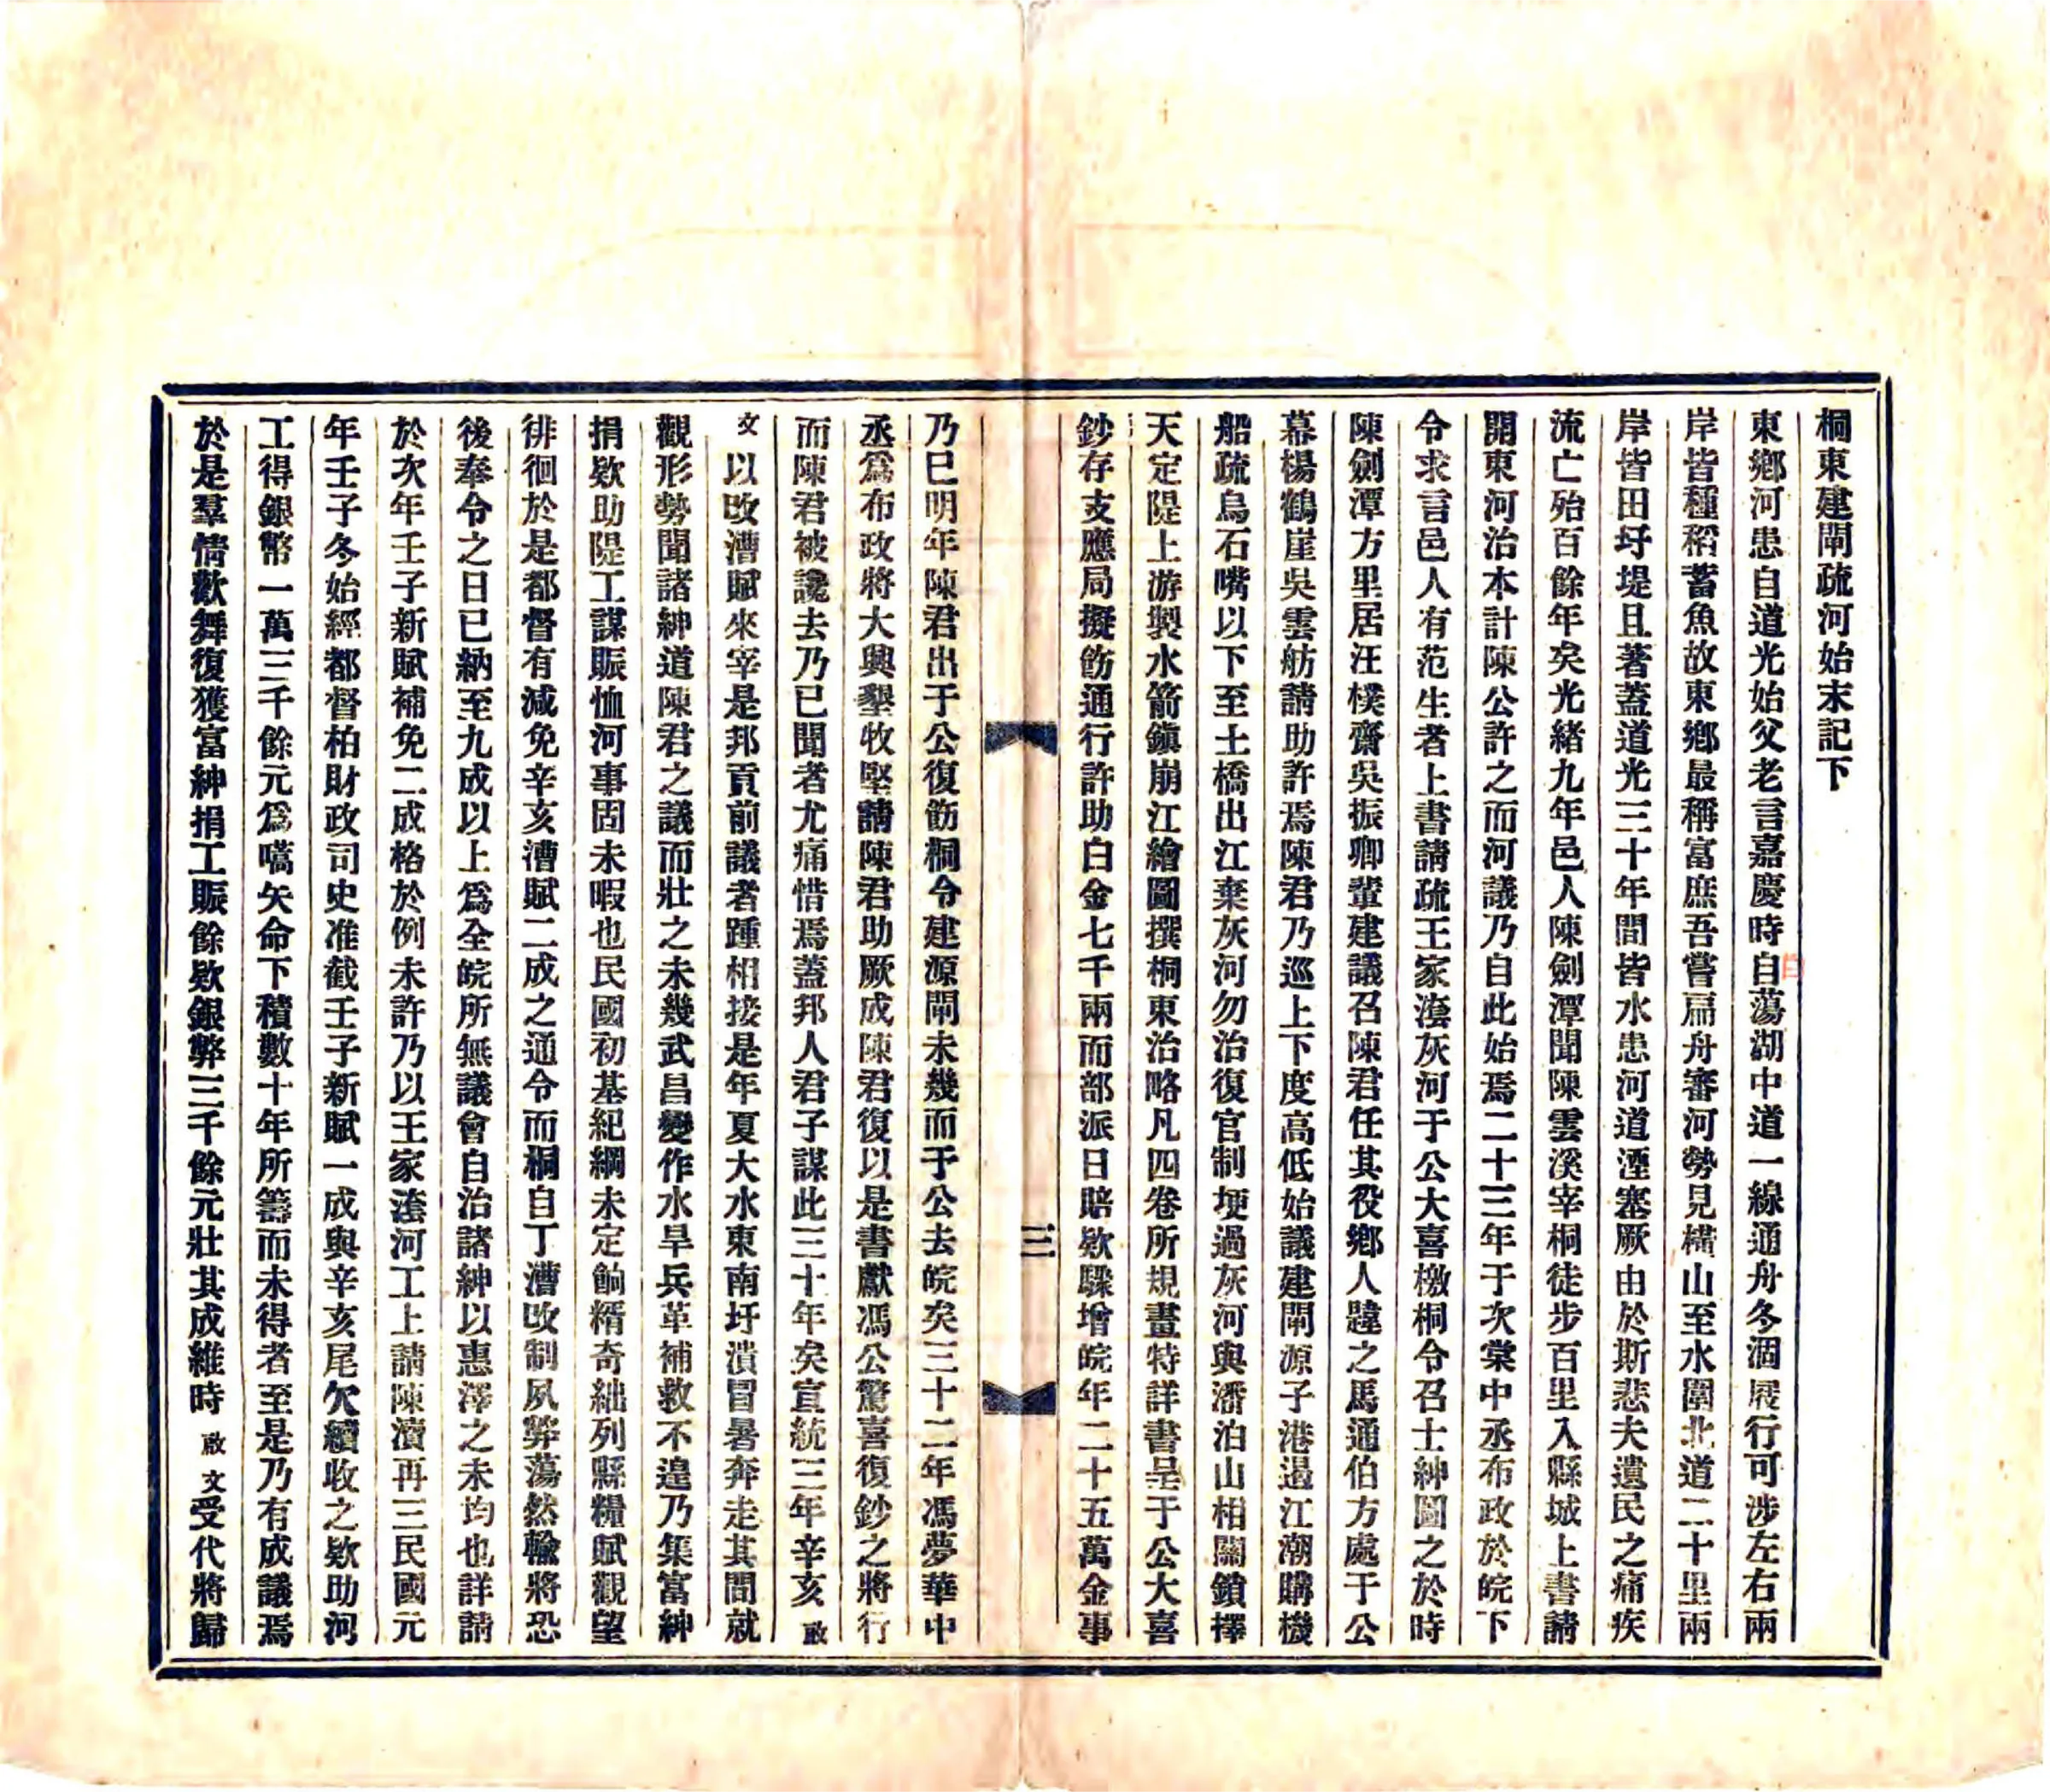 桐東建閘疏河始末記下
東鄉河患自道光始父老言嘉慶時自蕩湖中道一線通舟冬涸屐行可涉左右兩
白
岸皆種稻蓄魚故東鄉最稱富庶吾嘗扁舟審河勢見橫山至水圍北道二十里兩
岸皆田圩堤且著蓋道光三十年間皆水患河道湮塞厥由於斯悲夫遺民之痛疾
流亡殆百餘年矣光緒九年邑人陳劍潭聞陳雲溪宰桐徒步百里入縣城上書請
開東河治本計陳公許之而河議乃自此始焉二十三年于次棠中丞布政於皖下
令求言邑人有范生者上書請疏王家灣灰河于公大喜檄桐令召士紳圖之於時
陳劍潭方里居汪樸齋吳振卿輩建議召陳君任其役鄉人韙之馬通伯方處于公
幕楊鶴崖吳雲舫請助許焉陳君乃巡上下度高低始議建閘源子港遏江潮購機
船疏烏石嘴以下至土橋出江棄灰河勿治復官制埂過灰河與潘泊山相關鎖擇
天定隄上游製水箭鎮崩江繪圖撰桐東治略凡四卷所規畫特詳書呈于公大喜
鈔存支應局擬飭通行許助白金七千兩而部派日賠欵驟增皖年二十五萬金事
三
乃已明年陳君出于公復飭桐令建源閘未幾而于公去皖矣三十二年馮夢華中
丞爲布政將大興墾牧堅請陳君助厥成陳君復以是書獻馮公驚喜復鈔之將行
而陳君被讒去乃已聞者尤痛惜焉蓋邦人君子謀此三十年矣宣統三年辛亥啟
文以改漕賦來宰是邦貢前議者踵相接是年夏大水東南圩潰冒暑奔走其間就
觀形勢聞諸紳道陳君之議而壯之未幾武昌變作水旱兵革補救不遑乃集富紳
捐欵助隄工謀賑恤河事固未暇也民國初基紀綱未定餉糈奇絀列縣糧賦觀望
徘徊於是都督有減免辛亥漕賦二成之通令而桐自丁漕改制夙弊蕩然輸將恐
後奉令之日已納至九成以上爲全皖所無議會自治諸紳以惠澤之未均也詳請
於次年壬子新賦補免二成格於例未許乃以王家灣河工上請陳瀆再三民國元
年壬子冬始經都督柏財政司史准截壬子新賦一成與辛亥尾欠續收之欵助河
工得銀幣一萬三千餘元爲嚆矢命下積數十年所籌而未得者至是乃有成議焉
於是羣情歡舞復獲富紳捐工賑餘欵銀弊三千餘元壯其成維時啟文受代將歸